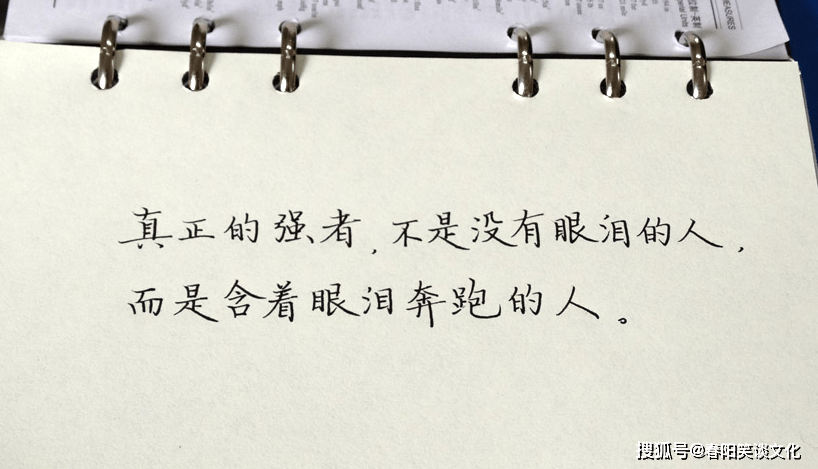 真正的强者,不是没有眼泪的人,
而是含着眼泪奔跑的人。
搜狐号@春阳笑谈文化